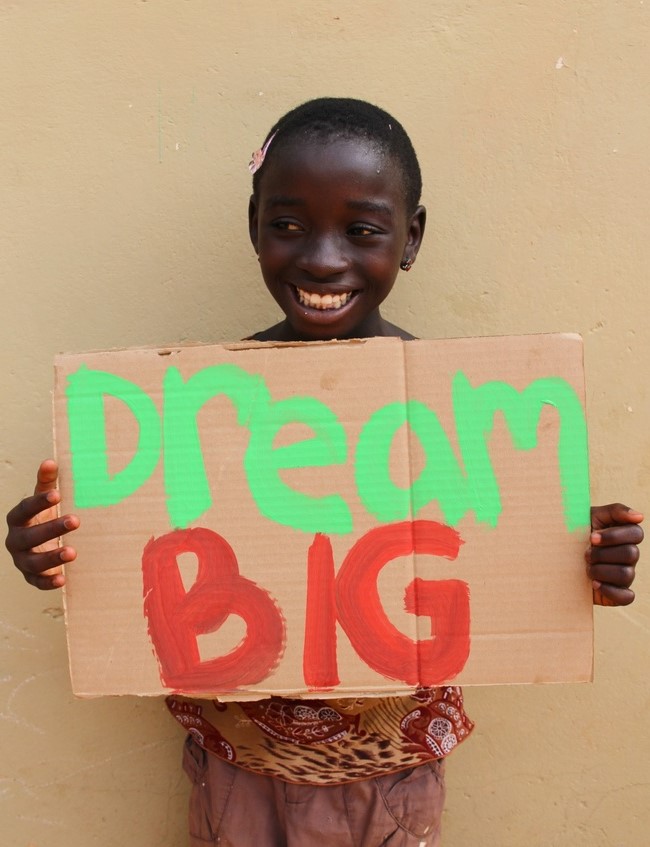 Dream
BIG